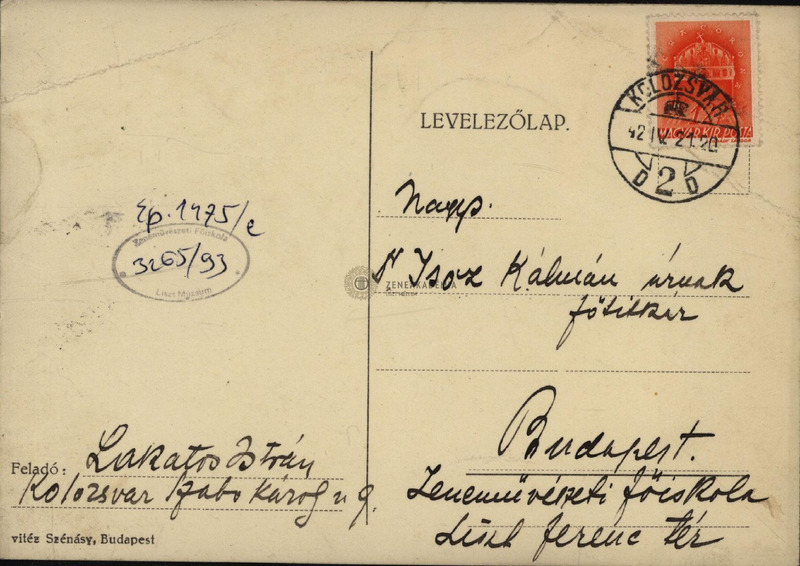 LEVELEZŐLAP.
KOLOZSVÁR
42 IV. 21. 20
D 2 D
MAGYAR KIR. POSTA
Ep. 1475/c
Zeneművészeti Főiskola
3265/93
Liszt Múzeum
Nagys.
Dr Isoz Kálmán úrnak
főtitkár
ZENEAKADÉMIA
Budapest.
Zeneművészeti főiskola
Liszt ferenc tér
Feladó: Lakatos István
Kolozsvar Szabo Károly u 9.
vitéz Szénásy, Budapest